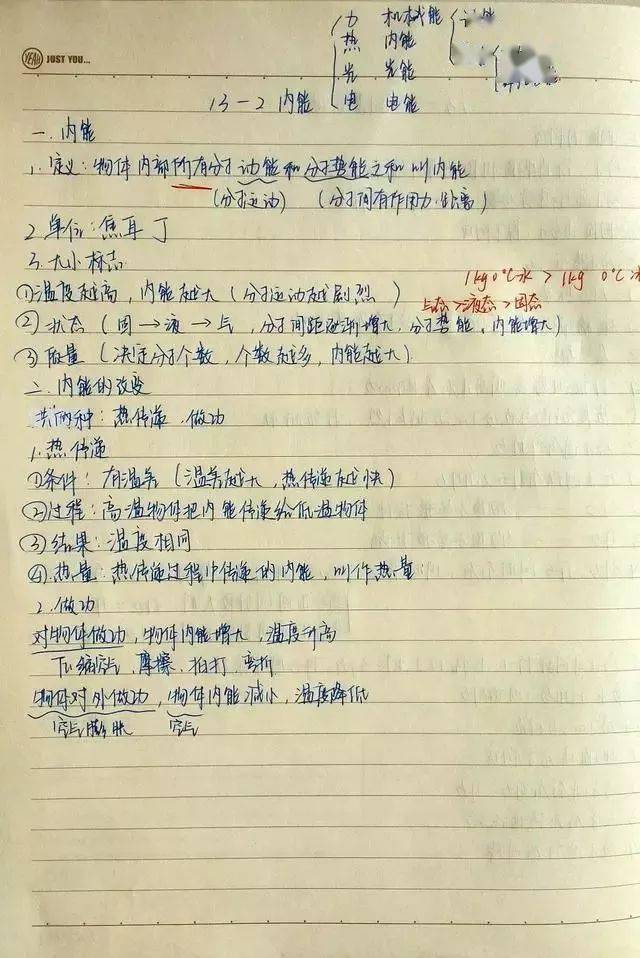 YEAH JUST YOU...
力 机械能
热 内能
光 光能
电 电能
13-2 内能
一.内能
1.定义：物体内部所有分子动能和分子势能之和叫内能
(分子运动) (分子间有作用力.距离)
2.单位：焦耳 J
3.大小标志
1kg 0℃水 > 1kg 0℃冰
①温度越高，内能越大（分子运动越剧烈）
气态>液态>固态
②状态（固→液→气，分子间距逐渐增大，分子势能，内能增大）
③质量（决定分子个数，个数越多，内能越大）
二.内能的改变
共两种：热传递.做功
1.热传递
①条件：有温差（温差越大，热传递越快）
②过程：高温物体把内能传递给低温物体
③结果：温度相同
④热量：热传递过程中传递的内能，叫作热量
2.做功
对物体做功，物体内能增大，温度升高
压缩空气，摩擦，拍打，弯折
物体对外做功，物体内能减小，温度降低
空气膨胀 空气